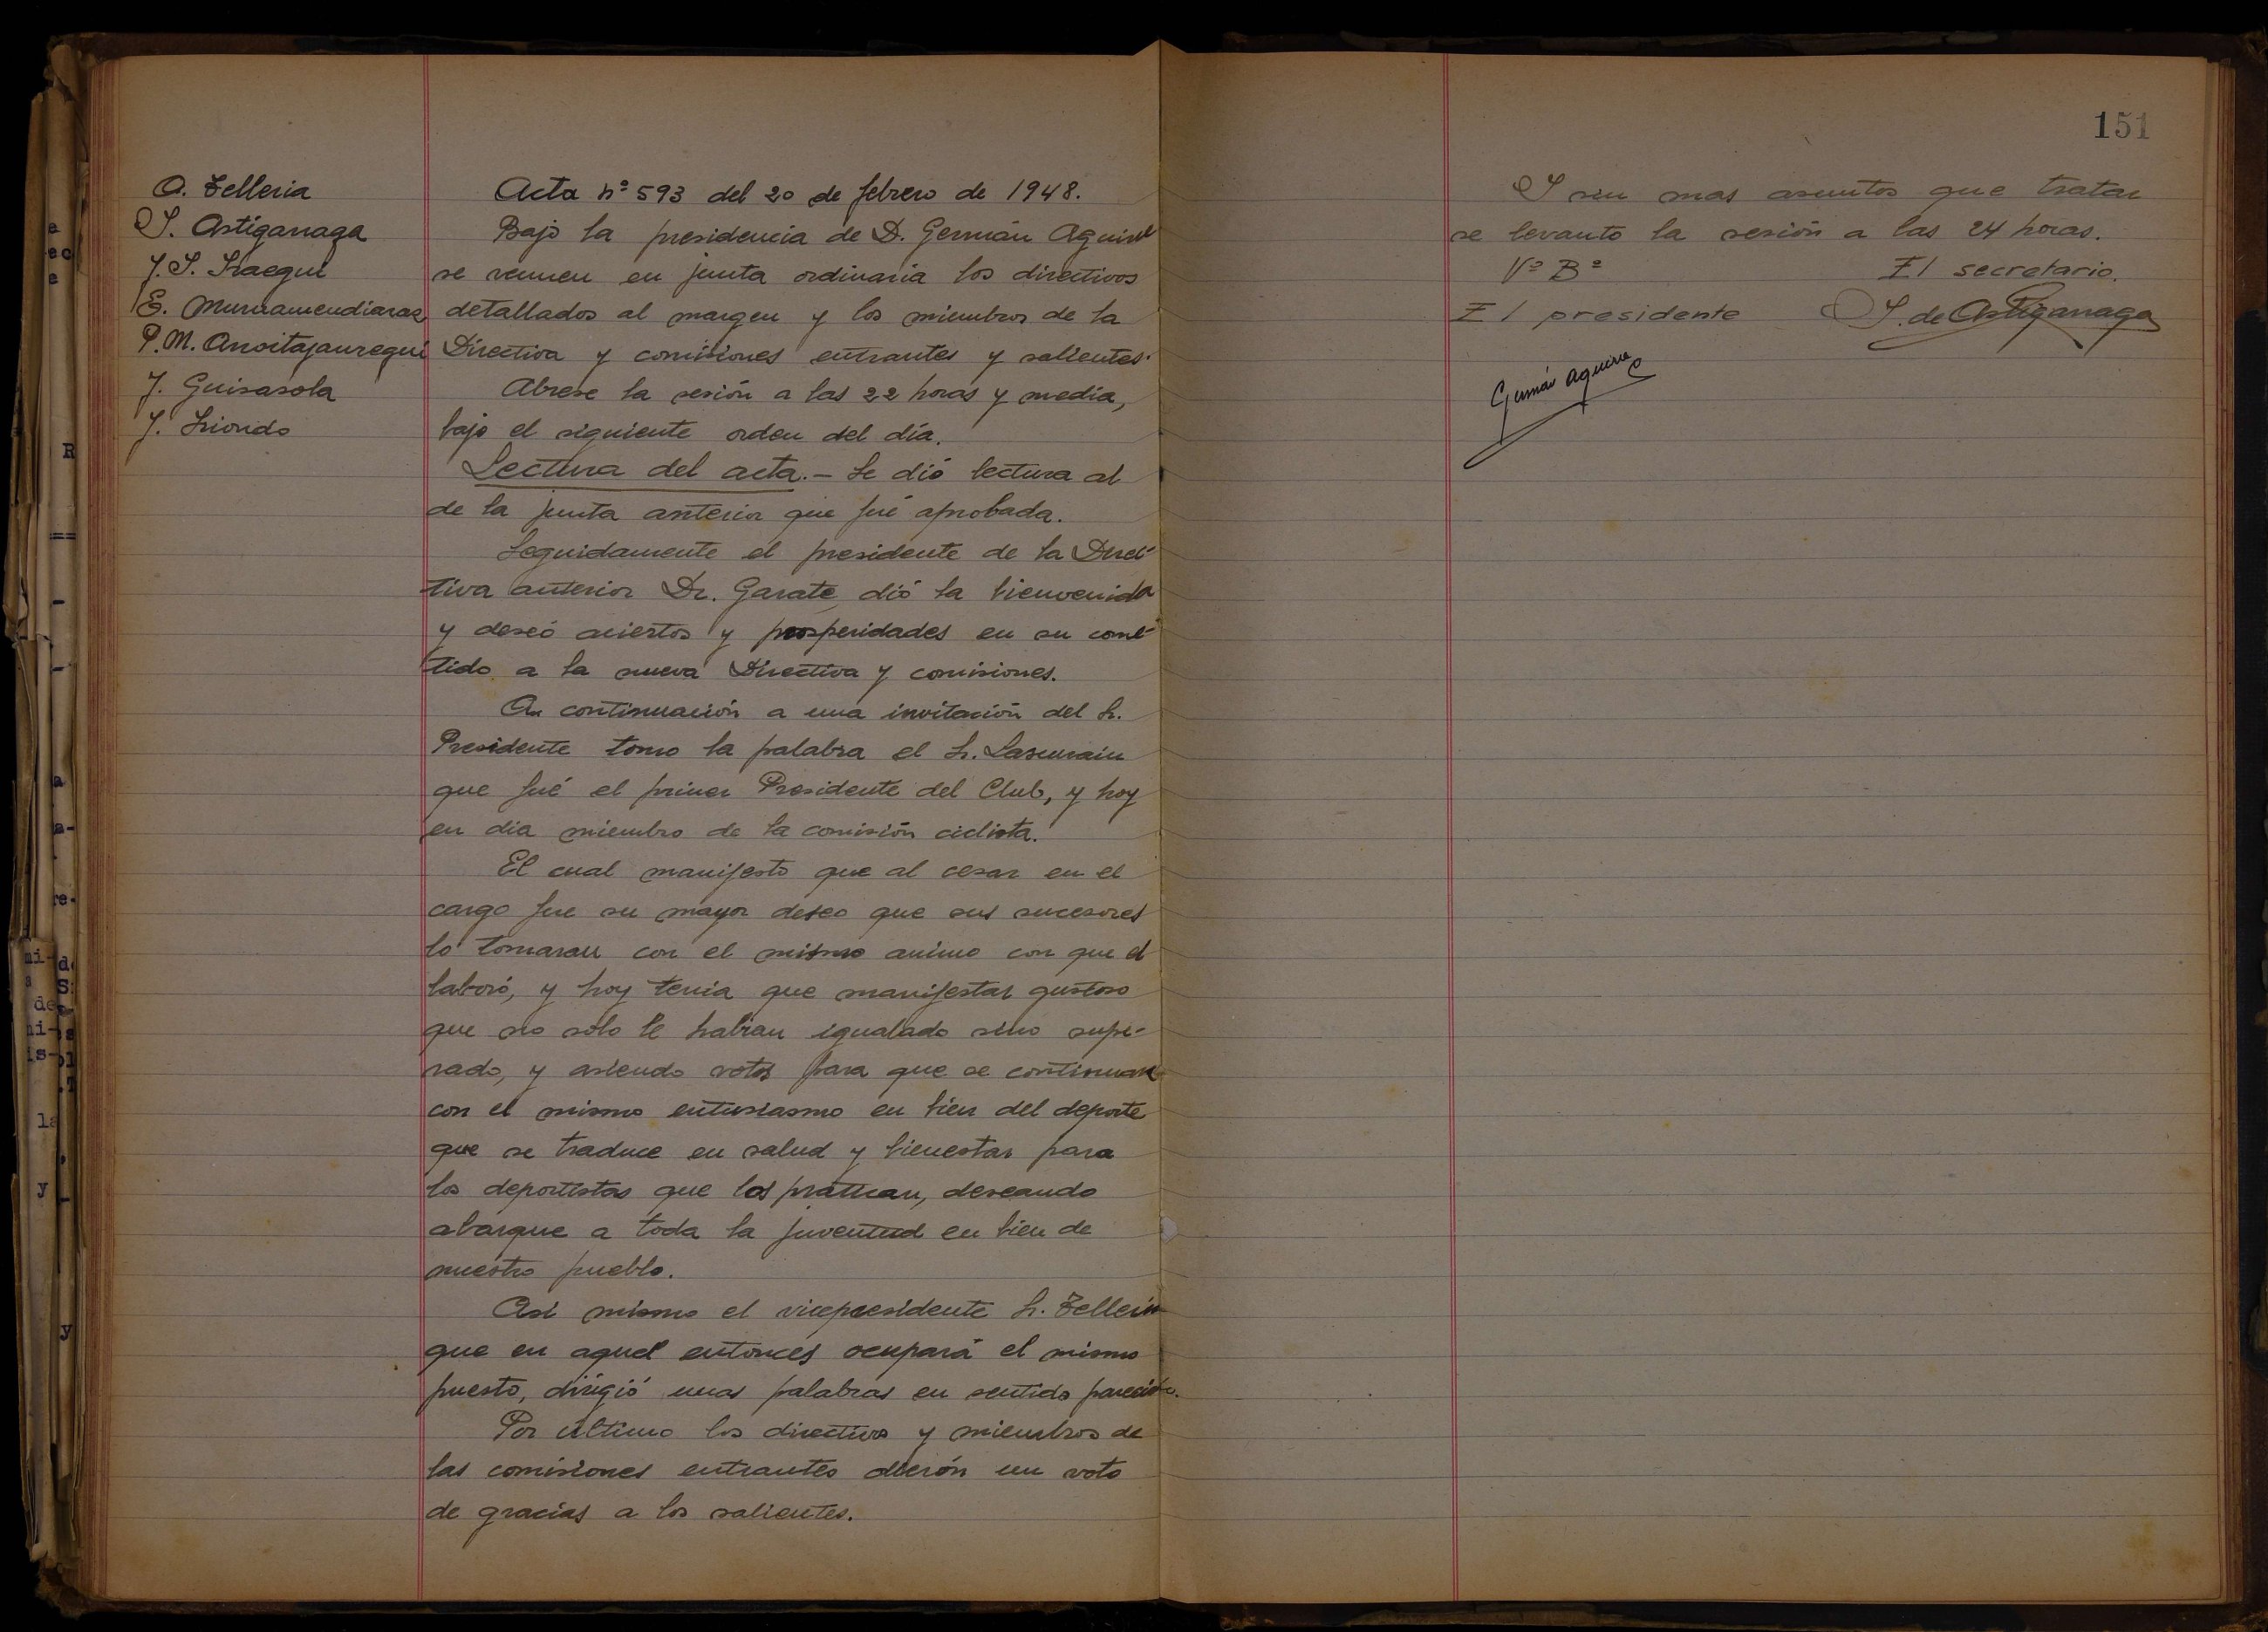 A. Telleria
I. Astigarraga
J. I. Iraegui
E. Muruamendiaraz
P. M. Anoitajauregui
J. Guisasola
J. Liondo
Acta nº 593 del 20 de febrero de 1948.
Bajo la presidencia de D. Germán Aguirre
se reunen en junta ordinaria los directivos
detallados al margen y los miembros de la
Directiva y comisiones entrantes y salientes.
Abrese la sesión a las 22 horas y media,
bajo el siguiente orden del día.
Lectura del acta.- Se dió lectura al
de la junta anterior que fué aprobada.
Seguidamente el presidente de la Direc-
tiva anterior Dr. Garate dió la bienvenida
y deseó aciertos y prosperidades en su come-
tido a la nueva Directiva y comisiones.
A continuación a una invitación del Sr.
Presidente tomo la palabra el Sr. Lascurain
que fué el primer Presidente del Club, y hoy
en dia miembro de la comisión ciclista.
El cual manifesto que al cesar en el
cargo fue su mayor deseo que sus sucesores
lo tomaran con el mismo animo con que el
laboró, y hoy tenia que manifestar gustoso
que no sólo le habian igualado sino supe-
rado, y asiendo votos para que se continuara
con el mismo entusiasmo en bien del deporte
que se traduce en salud y bienestar para
los deportistas que los pratican, deseando
abarque a toda la juventud en bien de
nuestro pueblo.
Asi mismo el vicepresidente Sr. Telleria
que en aquel entonces ocupará el mismo
puesto, dirigió unas palabras en sentido parecido.
Por último los directivos y miembros de
las comisiones entrantes dierón un voto
de gracias a los salientes.
151
I sin mas asuntos que tratar
se levanto la sesión a las 24 horas.
Vº Bº El secretario.
El presidente I. de Astigarraga
Germán Aguirre